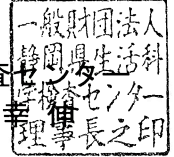 一般財団法人
静岡県生活科
学検査センター
理事長之印
センター
幸 伸